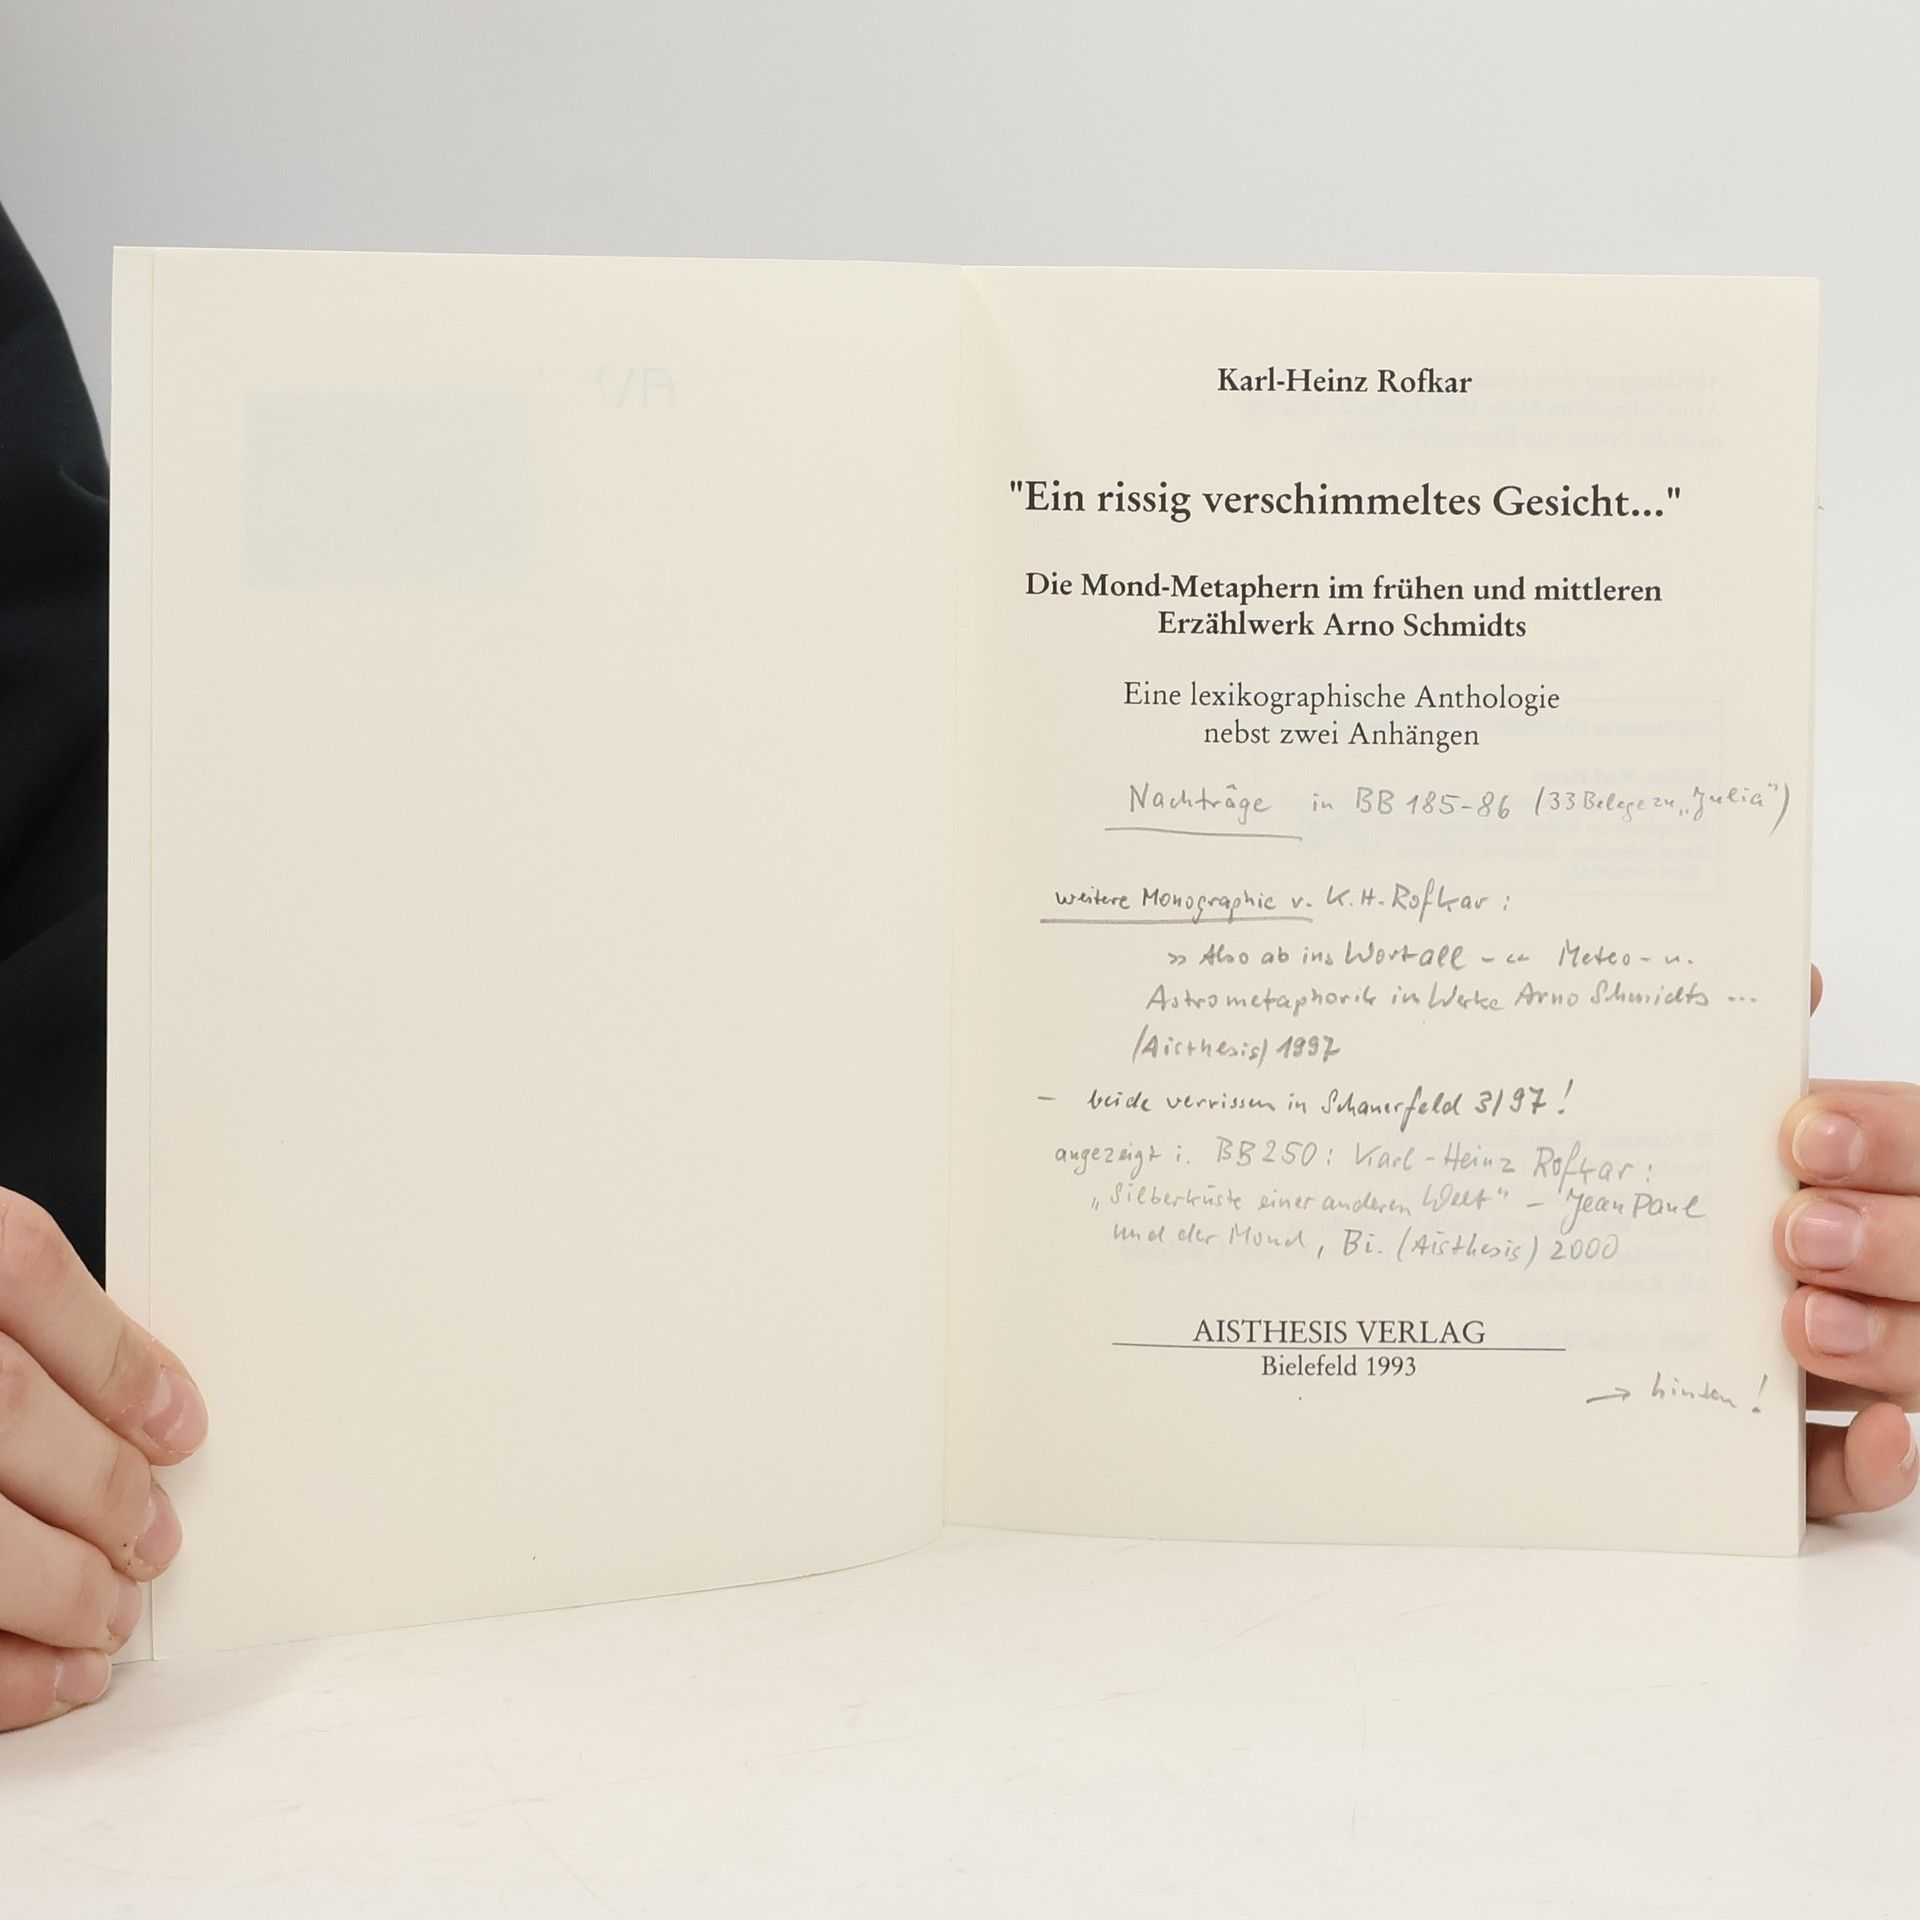 Karl-Heinz Rofkar
"Ein rissig verschimmeltes Gesicht..."
Die Mond-Metaphern im frühen und mittleren
Erzählwerk Arno Schmidts
Eine lexikographische Anthologie
nebst zwei Anhängen
Nachträge in BB 185-86 (33 Belege zu „Julia")
weitere Monographie v. K.H. Rofkar:
» Also ab ins Wortall - « Meteo- u.
Astrometaphorik im Werke Arno Schmidts ...
(Aisthesis) 1997
- beide verrissen in Schauerfeld 3/97!
angezeigt i. BB 250: Karl-Heinz Rofkar:
„Silberküste einer anderen Welt" - Jean Paul
und der Mond, Bi. (Aisthesis) 2000
AISTHESIS VERLAG
Bielefeld 1993
→ hinten!